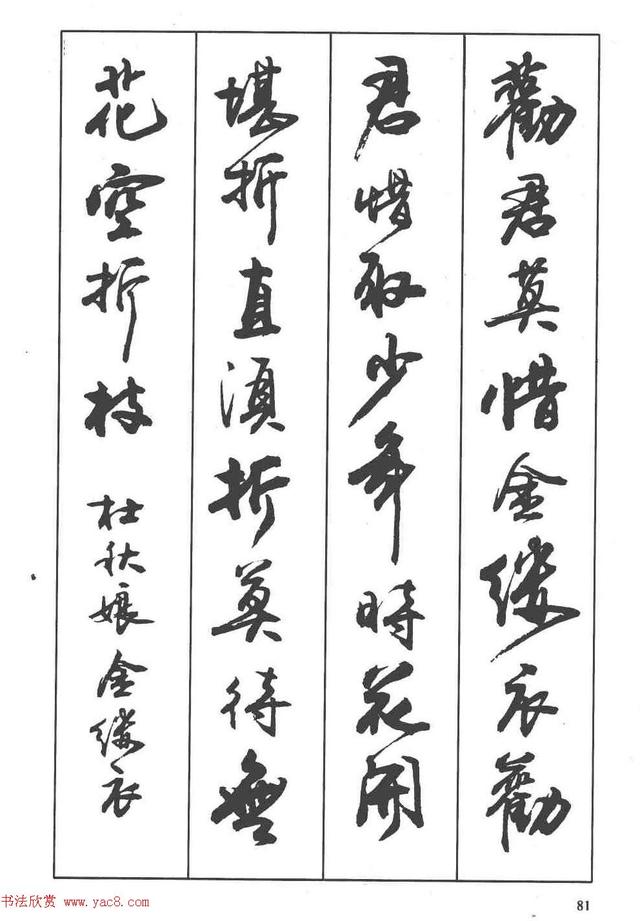 勸君莫惜金缕衣勸
君惜取少年時花開
堪折直須折莫待無
花空折枝 杜秋娘金缕衣
81
书法欣赏 www.yac8.com